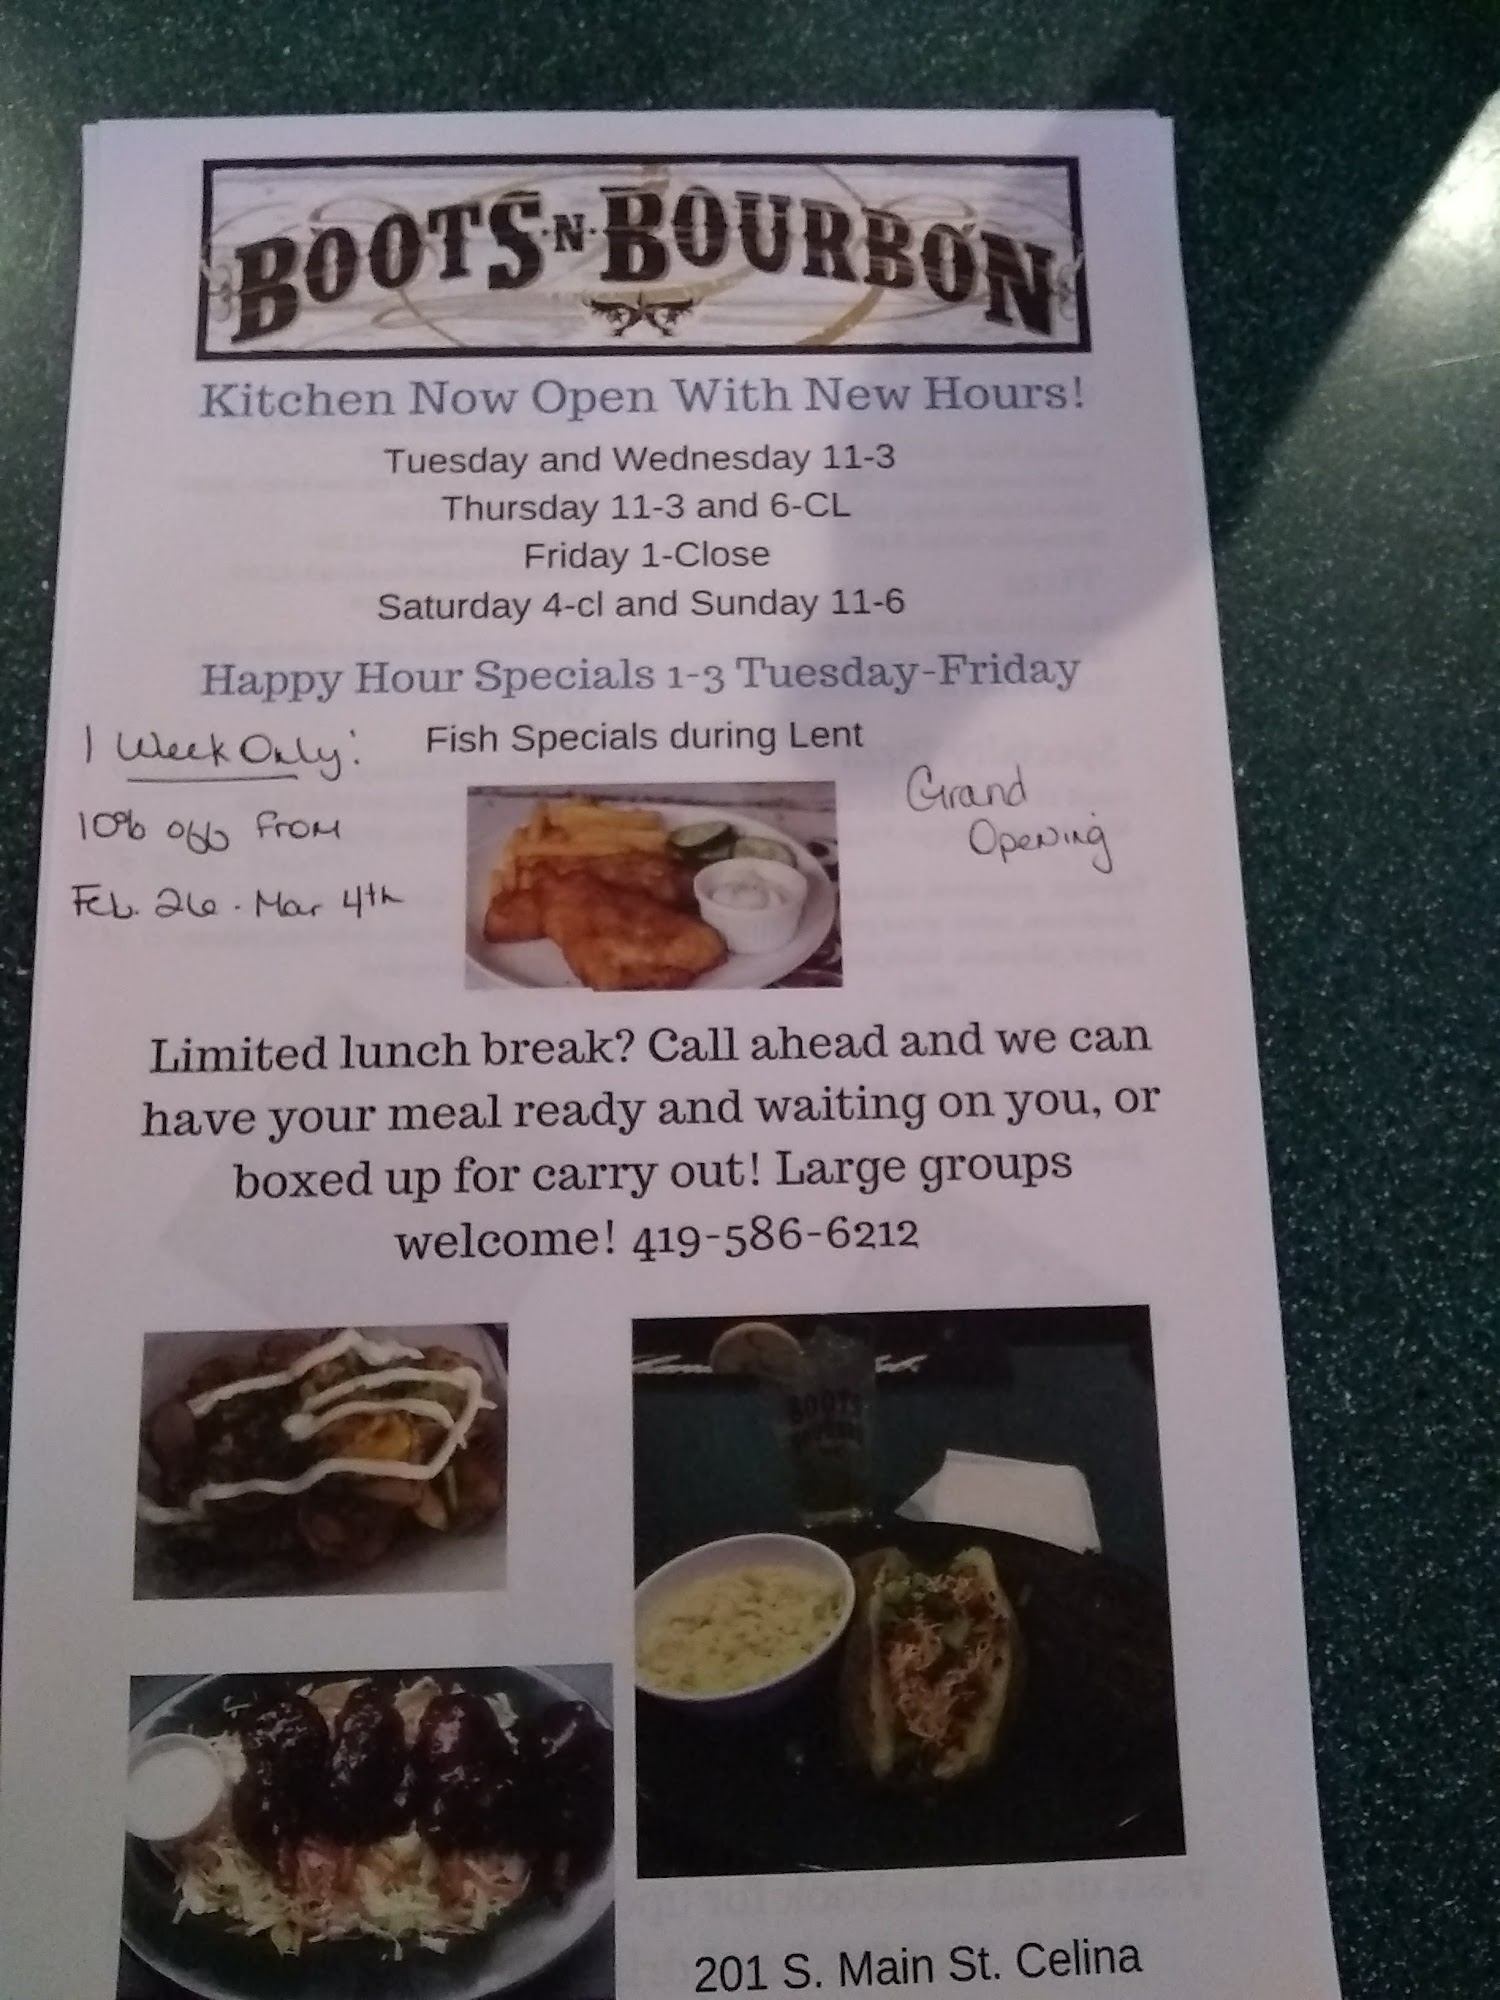 BOOTS·N·BOURBON
Kitchen Now Open With New Hours!
Tuesday and Wednesday 11-3
Thursday 11-3 and 6-CL
Friday 1-Close
Saturday 4-cl and Sunday 11-6
Happy Hour Specials 1-3 Tuesday-Friday
Fish Specials during Lent
1 Week Only:
10% off From
Feb. 26 - Mar 4th
Grand
Opening
Limited lunch break? Call ahead and we can
have your meal ready and waiting on you, or
boxed up for carry out! Large groups
welcome! 419-586-6212
BOOTS
201 S. Main St. Celina